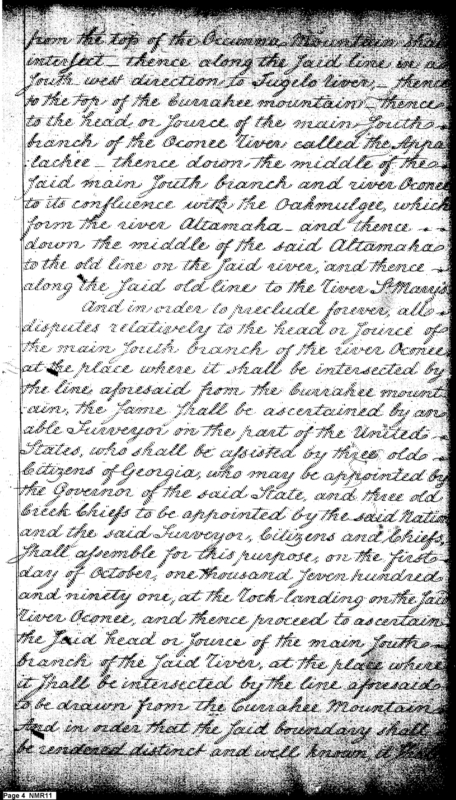 from the top of the Occunna Mountain shall
intersect – thence along the said line in a
South west direction to Tugelo river, – thence
to the top of the Currahee mountain – thence
to the head or source of the main South
branch of the Oconee River called the Appa
:lachee – thence down the middle of the
said main South branch and river Oconee
to its confluence with the Oakmulgee, which
form the river Altamaha – and thence
down the middle of the said Altamaha
to the old line on the said river, and thence
along the said old line to the River St. Mary's.
And in order to preclude forever, all
disputes relatively to the head or source of
the main South branch of the river Oconee
at the place where it shall be intersected by
the line aforesaid from the Currahee mount
:ain, the same shall be ascertained by an
able Surveyor on the part of the United
States, who shall be assisted by three old
Citizens of Georgia, who may be appointed by
the Governor of the said State, and three old
Creek Chiefs to be appointed by the said Nation
and the said Surveyor, Citizens and Chiefs,
shall assemble for this purpose, on the first
day of October, one thousand seven hundred
and ninety one, at the Rock landing on the said
River Oconee, and thence proceed to ascertain
the said head or source of the main South
branch of the said River, at the place where
it shall be intersected by the line aforesaid
to be drawn from the Currahee Mountain
And in order that the said boundary shall
be rendered distinct and well known, it shall
Page 4 NMR11